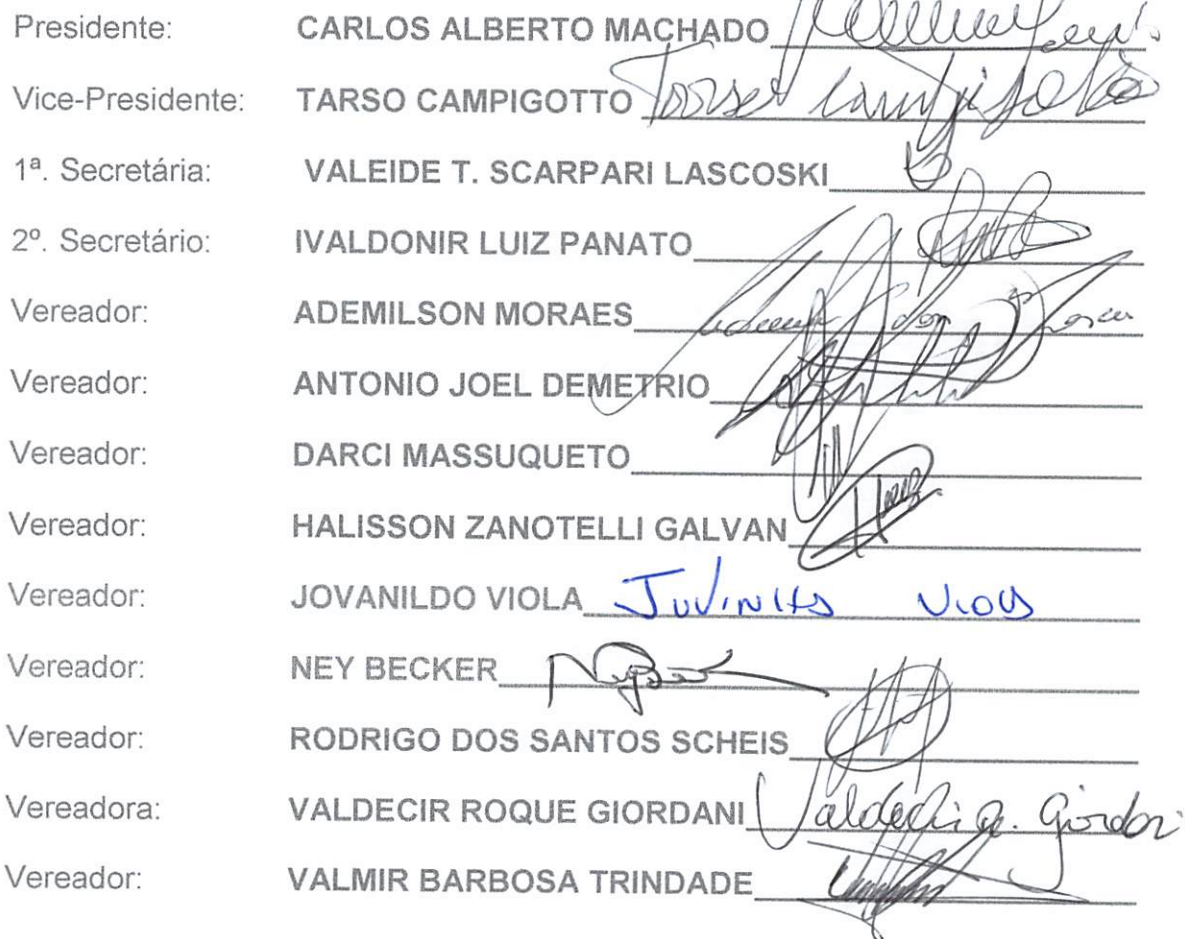 Presidente: CARLOS ALBERTO MACHADO
Vice-Presidente: TARSO CAMPIGOTTO
1ª. Secretária: VALEIDE T. SCARPARI LASCOSKI
2º. Secretário: IVALDONIR LUIZ PANATO
Vereador: ADEMILSON MORAES
Vereador: ANTONIO JOEL DEMETRIO
Vereador: DARCI MASSUQUETO
Vereador: HALISSON ZANOTELLI GALVAN
Vereador: JOVANILDO VIOLA
Vereador: NEY BECKER
Vereador: RODRIGO DOS SANTOS SCHEIS
Vereadora: VALDECIR ROQUE GIORDANI
Vereador: VALMIR BARBOSA TRINDADE